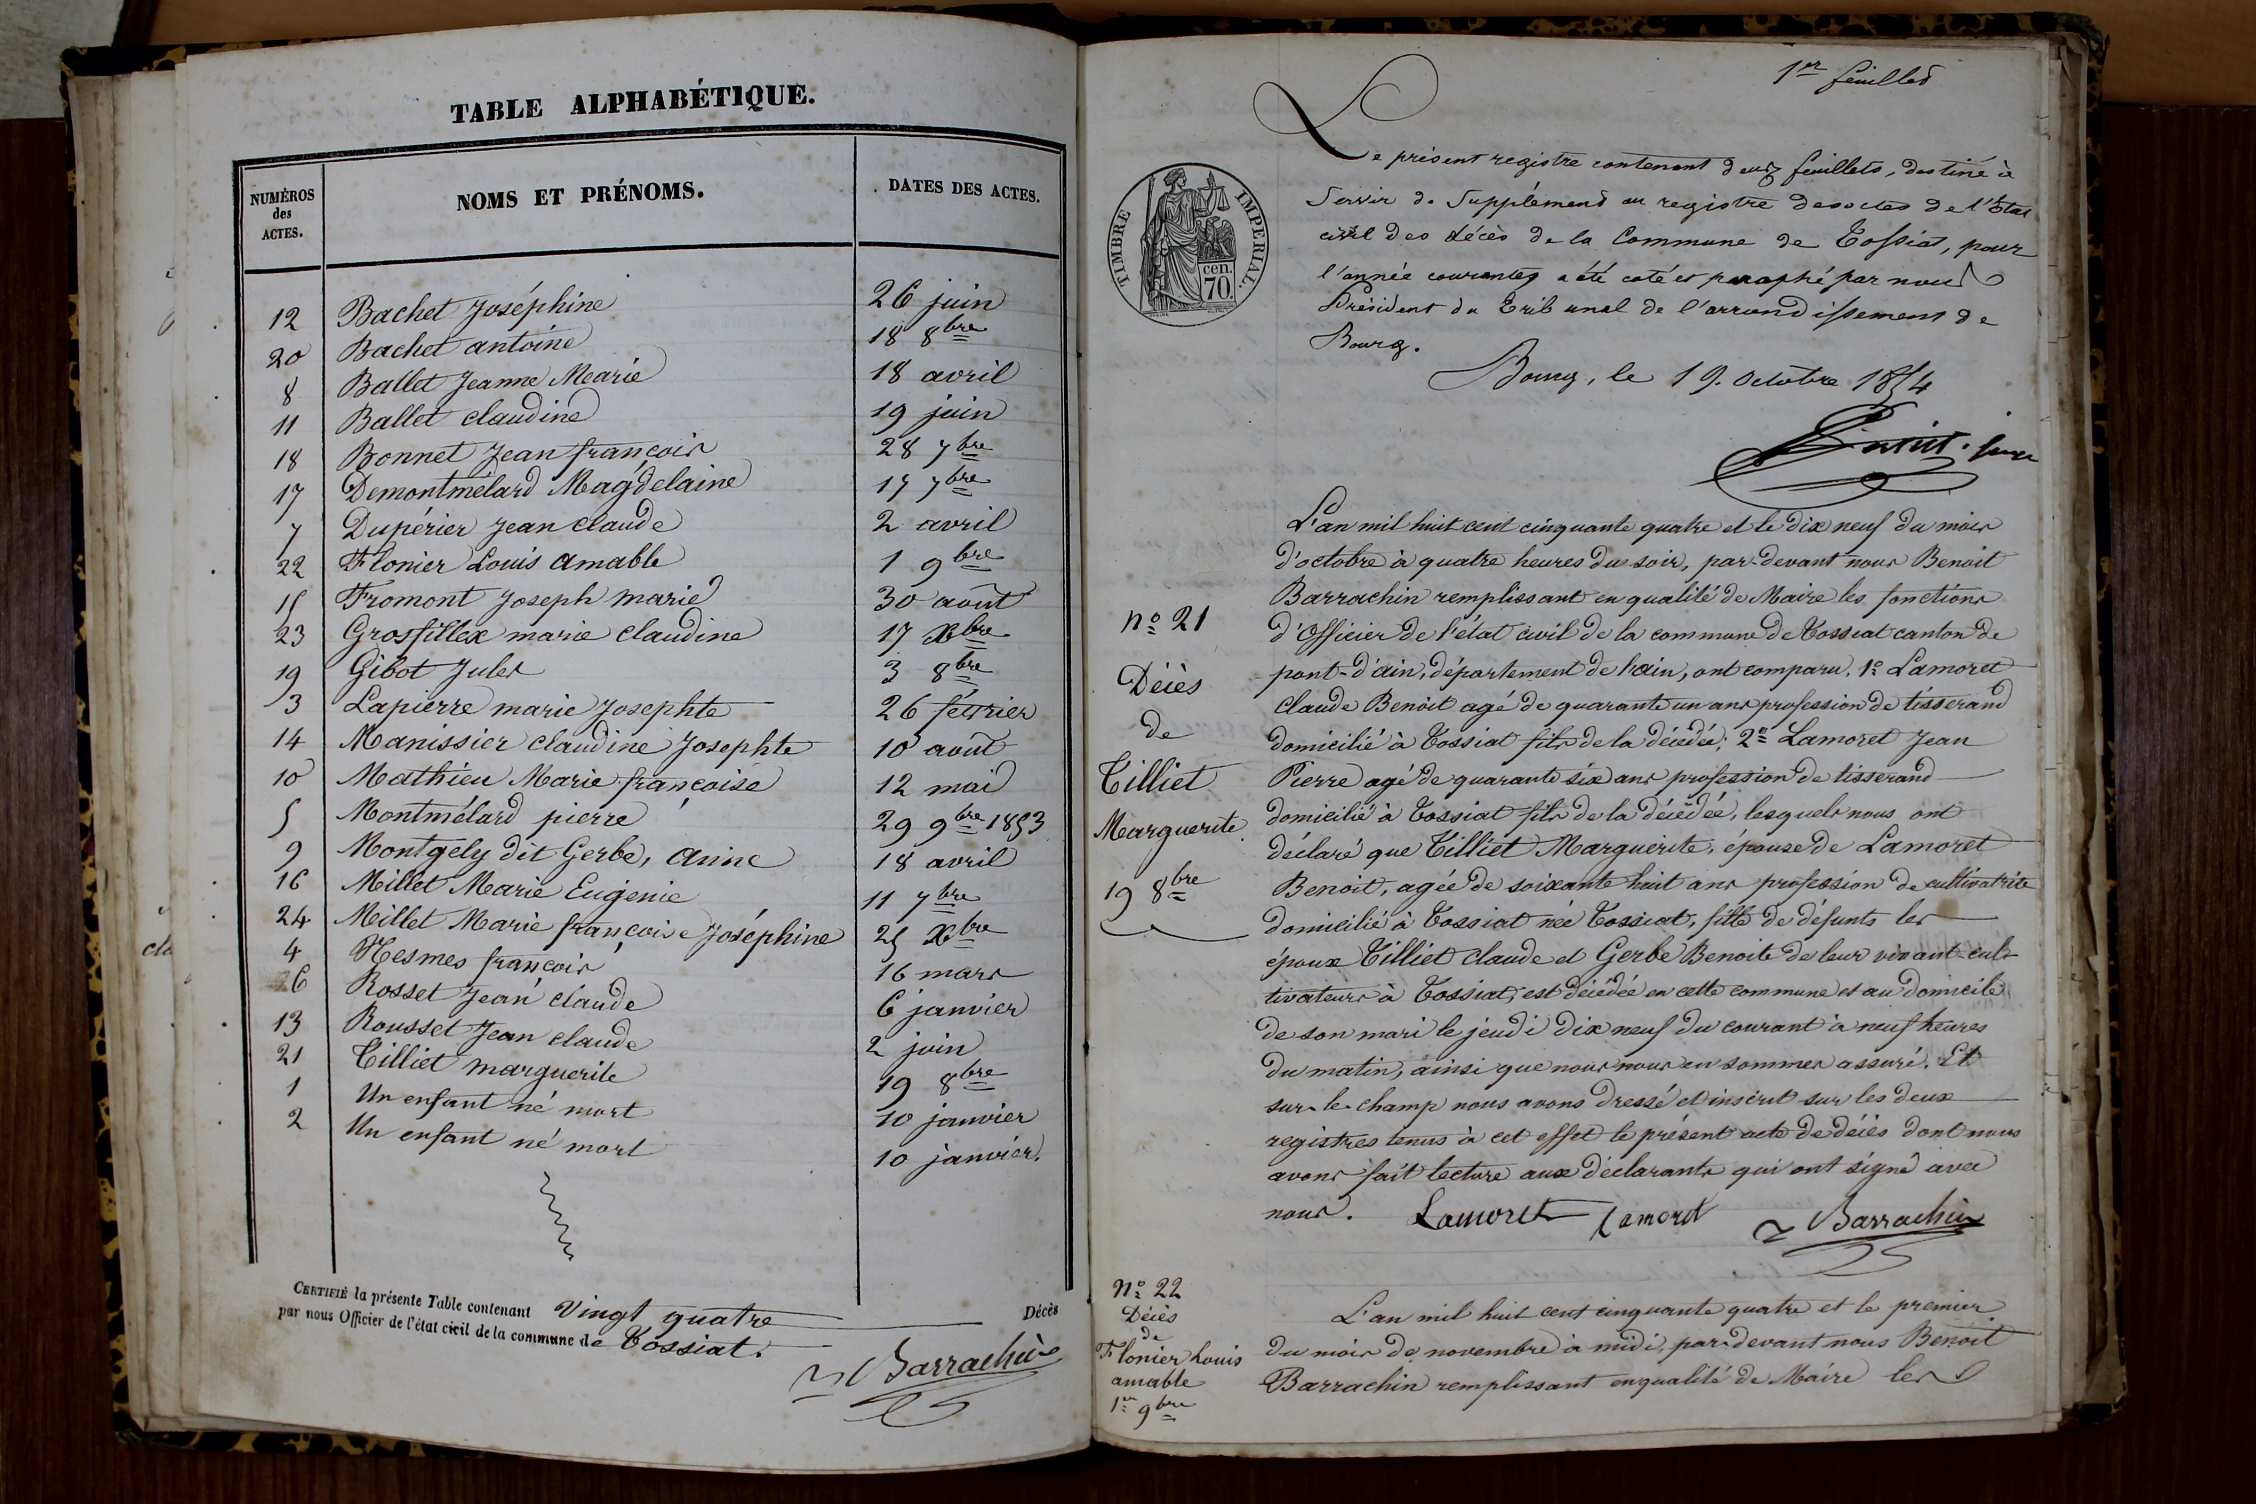 TABLE ALPHABÉTIQUE.
NUMÉROS des ACTES.
NOMS ET PRÉNOMS.
DATES DES ACTES.
12 Bachet Joséphine 26 juin
20 Bachet antoine 18 8bre
8 Ballet Jeanne Marie 18 avril
11 Ballet claudine 19 juin
18 Bonnet Jean françois 28 7bre
17 Demontmélard Magdelaine 17 7bre
7 Dupérier Jean claude 2 avril
22 Flonier Louis amable 1 9bre
15 Fromont Joseph marie 30 août
23 Grosfillex marie claudine 17 Xbre
19 Gibot Jules 3 8bre
3 Lapierre marie Josephte 26 février
14 Manissier claudine Josephte 10 août
10 Mathieu Marie françoise 12 mai
5 Montmélard pierre 29 9bre 1853
9 Montgely dit Gerbe, anne 18 avril
16 Millet Marie Eugenie 11 7bre
24 Millet Marie françoise Joséphine 25 Xbre
4 Nesmes françois 16 mars
6 Rosset Jean claude 6 janvier
13 Rousset Jean claude 2 juin
21 Tilliet marguerite 19 8bre
1 Un enfant né mort 10 janvier
2 Un enfant né mort 10 janvier.
CERTIFIÉ la présente Table contenant vingt quatre Décès
par nous Officier de l'état civil de la commune de Tossiat.
Barrachin
1er feuillet
TIMBRE IMPERIAL.
cen.
70.
Le présent registre contenant deux feuillets, destiné à
servir de supplément au registre des actes de l'Etat
civil des décès de la Commune de Tossiat, pour
l'année courante, a été coté et paraphé par nous
Président du Tribunal de l'arrondissement de
Bourg.
Bourg, le 19. Octobre 1854
n° 21
Décès
de
Tilliet
Marguerite
19 8bre
L'an mil huit cent cinquante quatre et le dix neuf du mois
d'octobre à quatre heures du soir, par-devant nous Benoit
Barrachin remplissant en qualité de Maire les fonctions
d'Officier de l'état civil de la commune de Tossiat canton de
pont-d'ain, département de l'ain, ont comparu, 1° Lamoret
Claude Benoit agé de quarante un ans profession de tisserand
domicilié à Tossiat fils de la décédée; 2° Lamoret Jean
Pierre agé de quarante six ans profession de tisserand
domicilié à Tossiat fils de la décédée, lesquels nous ont
déclaré que Tilliet Marguerite, épouse de Lamoret
Benoit, agée de soixante huit ans profession de cultivatrice
domicilié à Tossiat née Tossiat, fille de défunts les
époux Tilliet claude et Gerbe Benoite de leur vivant cul-
tivateurs à Tossiat, est décédée en cette commune et au domicile
de son mari le jeudi dix neuf du courant à neuf heures
du matin, ainsi que nous nous en sommes assuré. Et
sur-le-champ nous avons dressé et inscrit sur les deux
registres tenus à cet effet le présent acte de décès dont nous
avons fait lecture aux déclarants qui ont signé avec
nous. Lamoret Lamoret Barrachin
N° 22
Décès
de
Flonier Louis
amable
1er 9bre
L'an mil huit cent cinquante quatre et le premier
du mois de novembre à midi, par-devant nous Benoit
Barrachin remplissant en qualité de Maire les